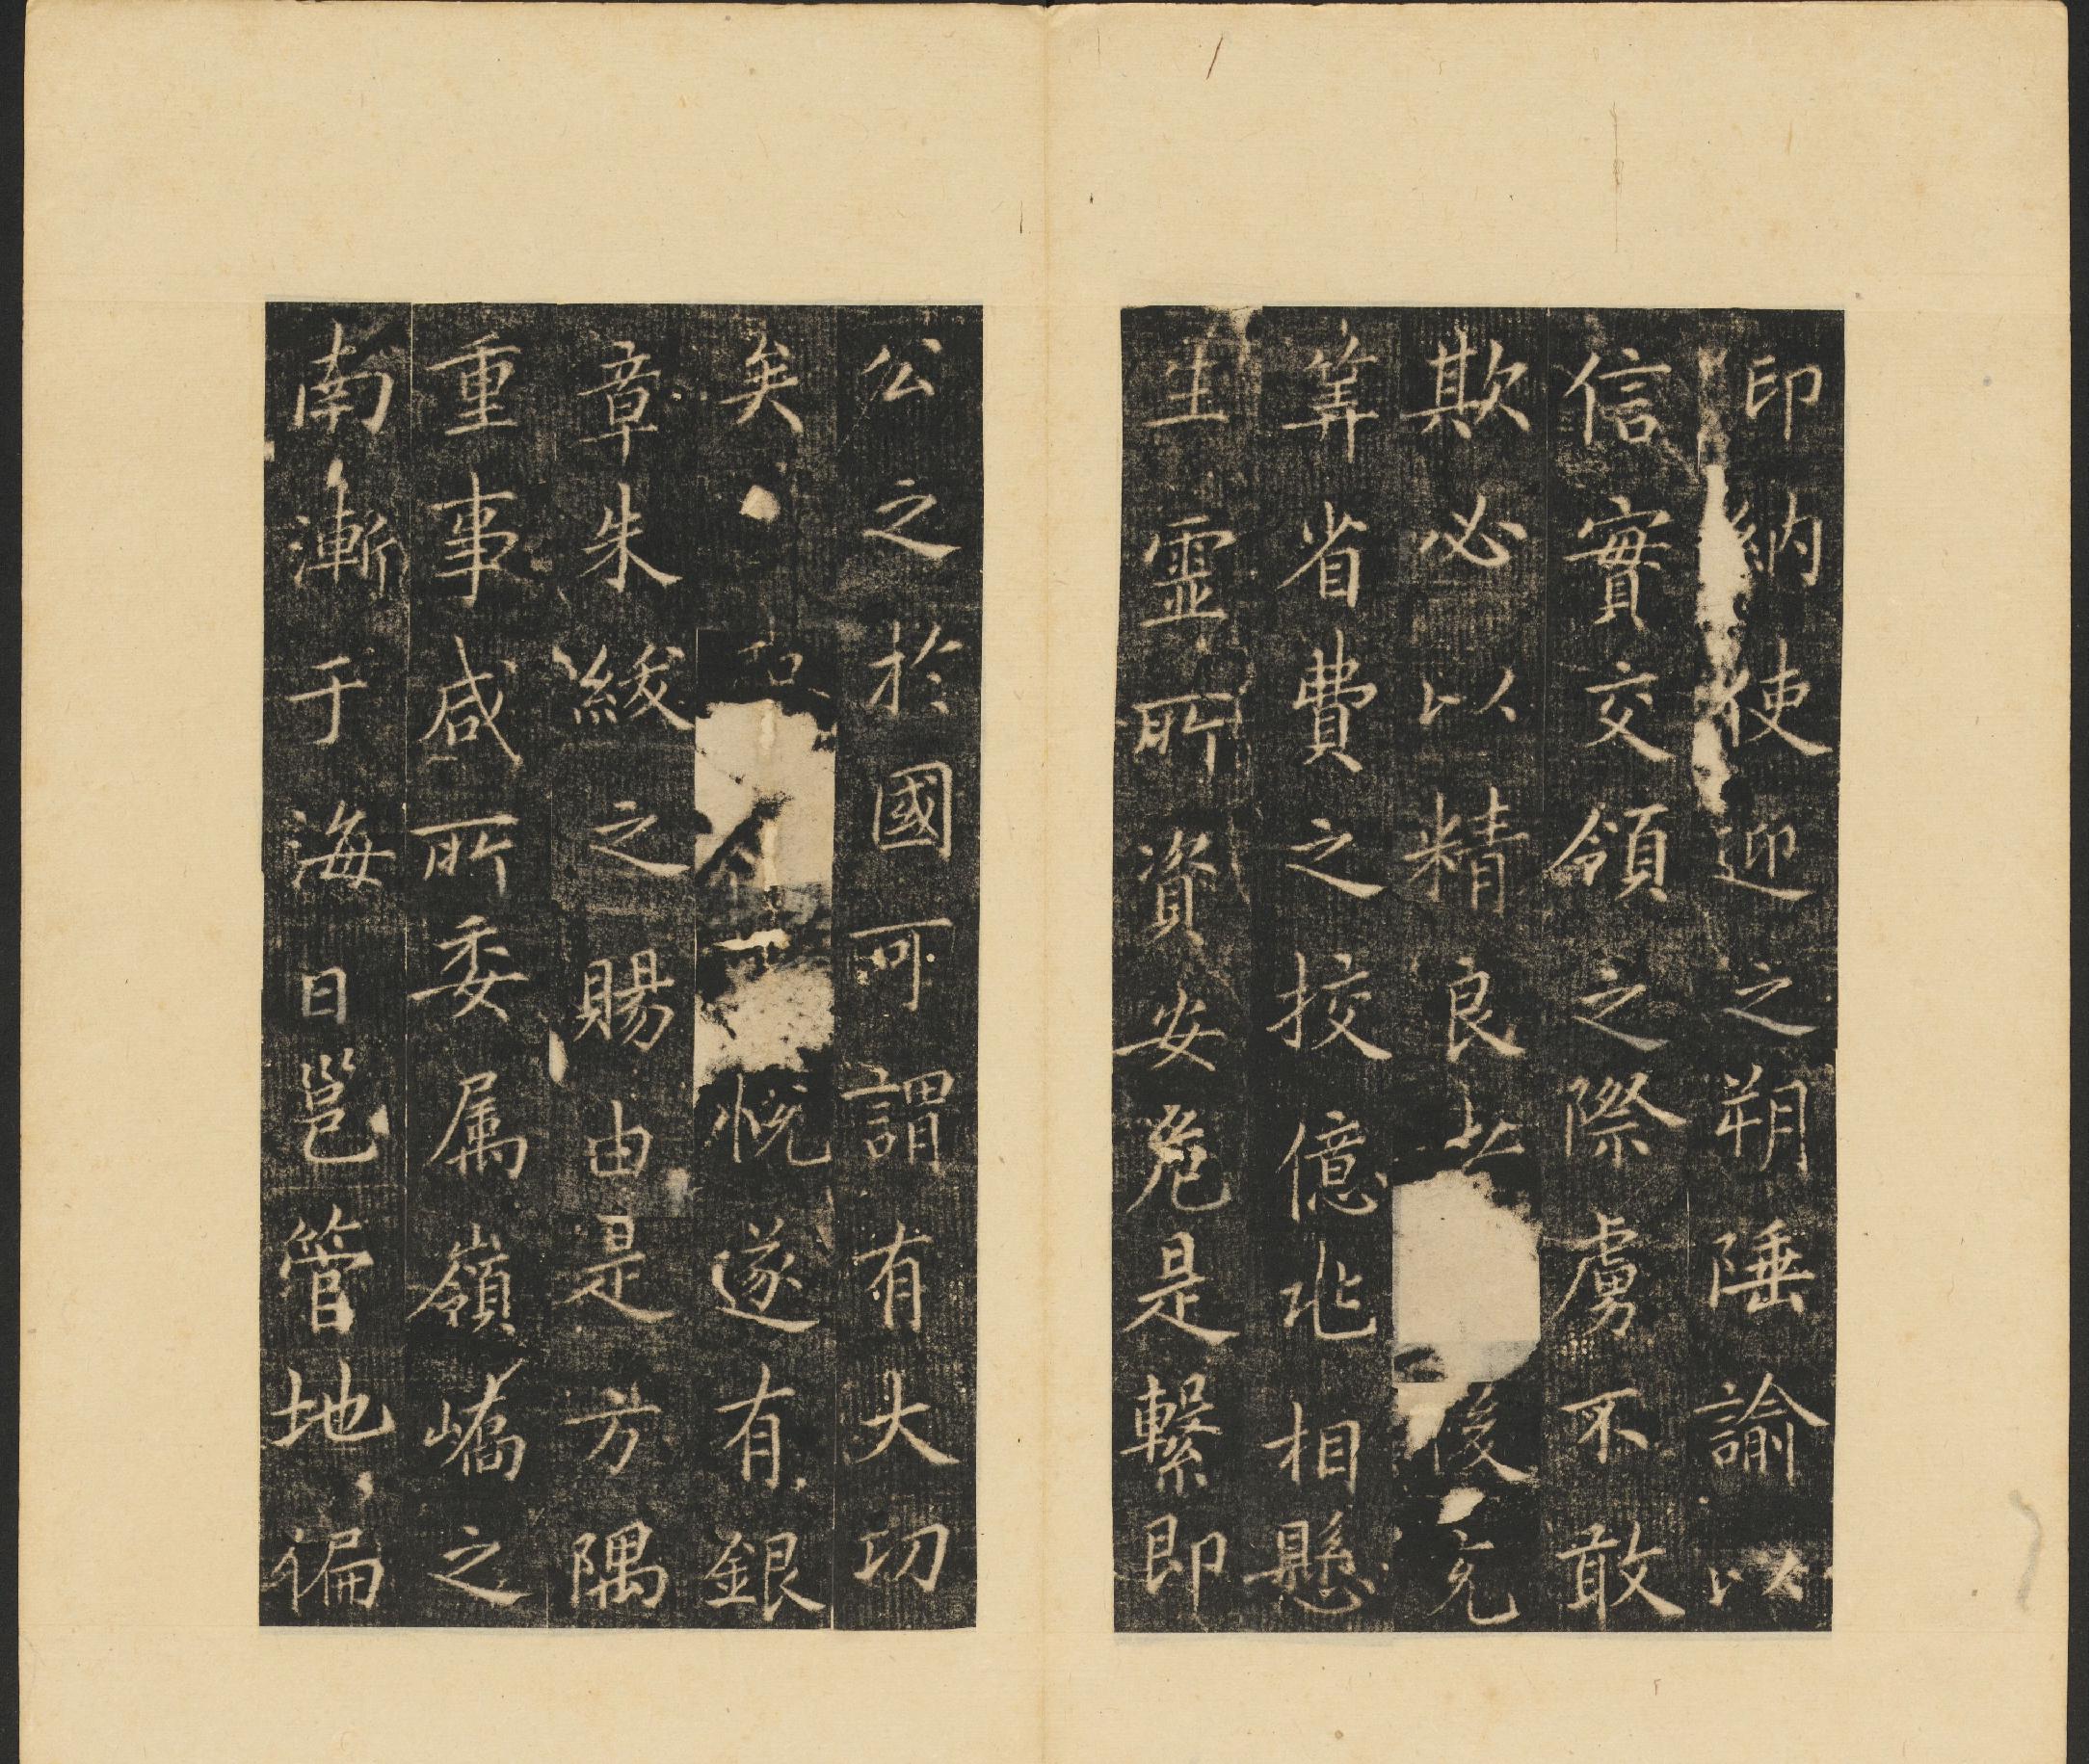 印納使迎之朔陲諭以
信實交領之際虜不敢
欺必以精良上後充
筭省費之挍億兆相懸
生靈所資安危是繫即
公之於國可謂有大功
矣和悅遂有銀
章朱紱之賜由是方隅
重事咸所委属嶺嶠之
南漸于海日邕管地偏